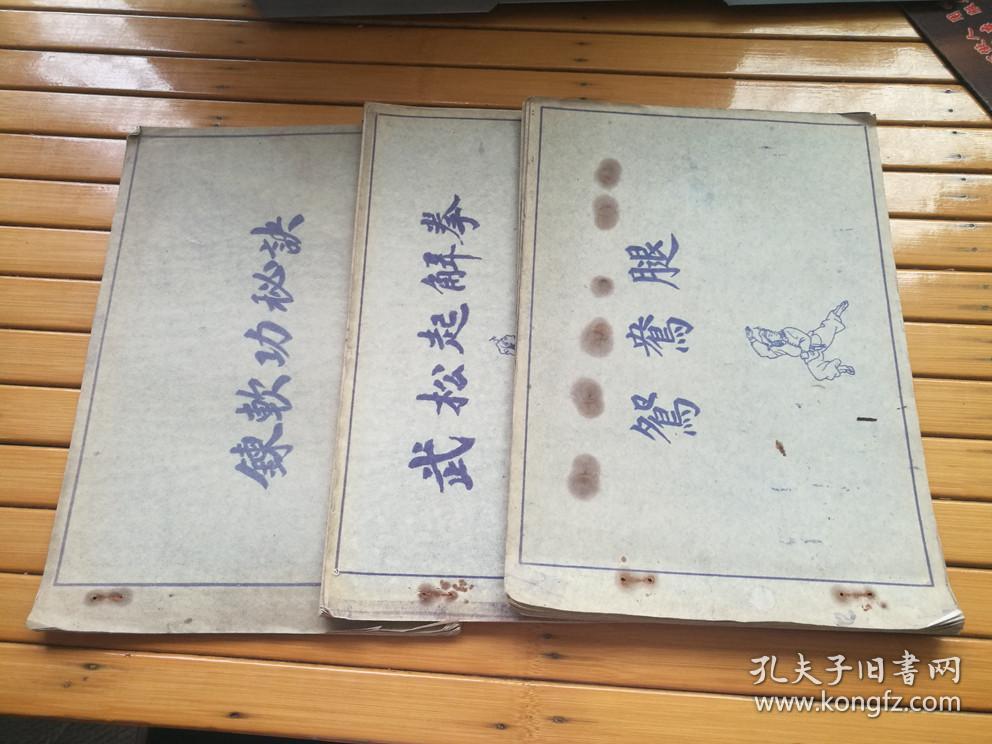 鍊軟功秘訣
武松起解拳
鴛鴦腿
孔夫子旧书网
www.kongfz.com